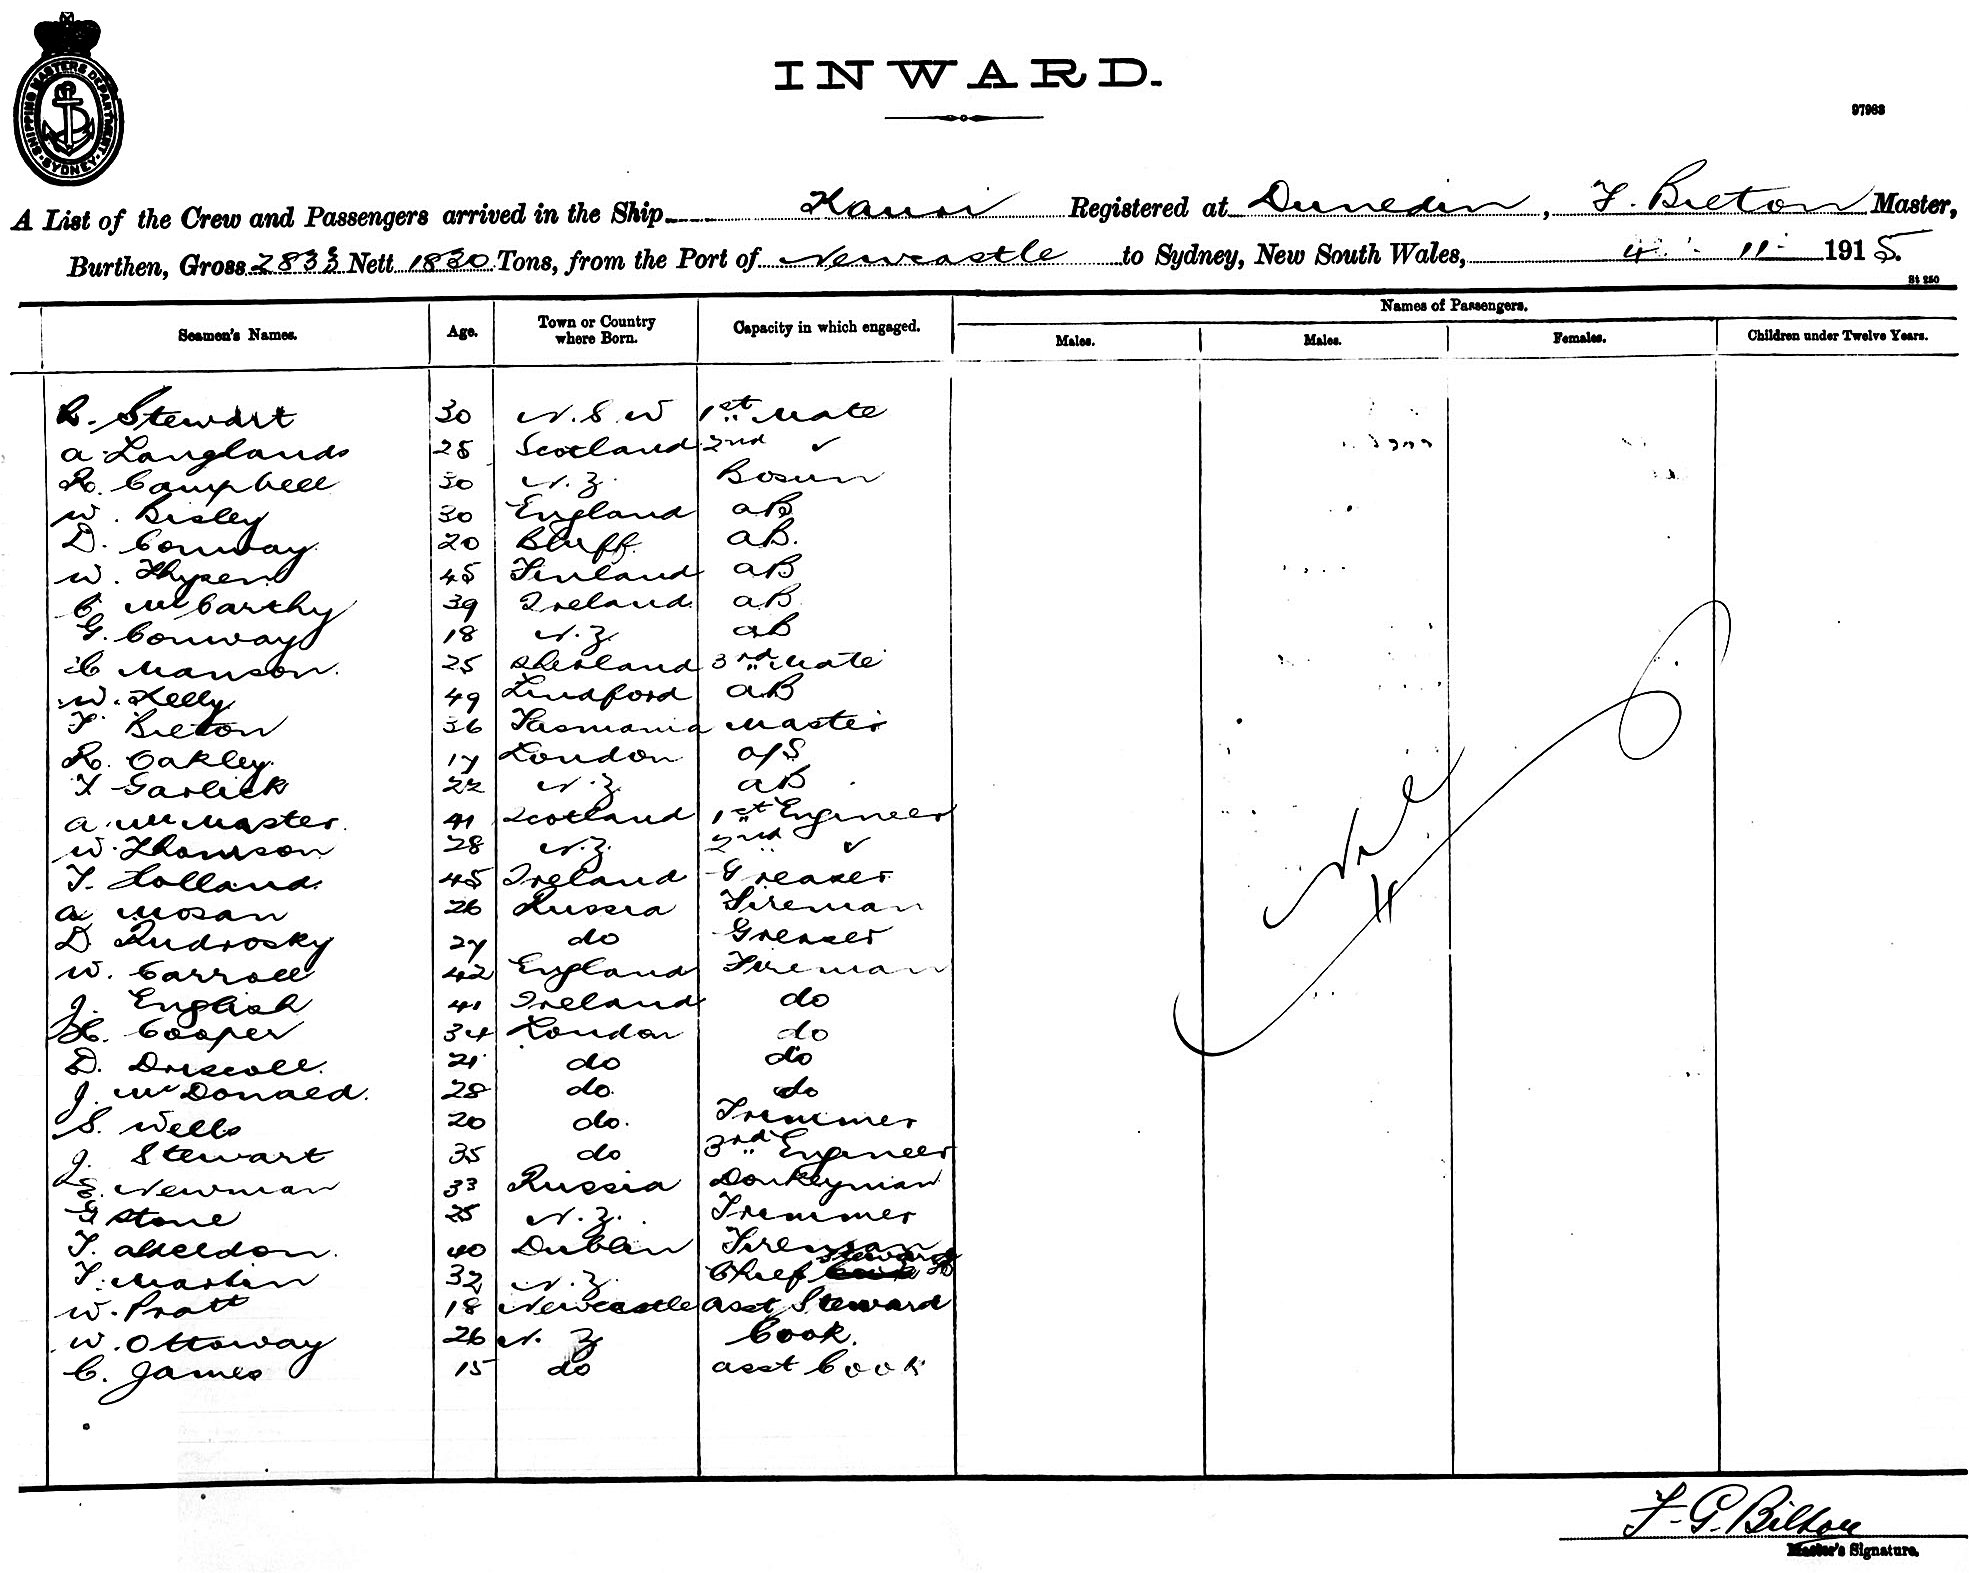 SHIPPING MASTERS DEPARTMENT SYDNEY
INWARD.
97963
A List of the Crew and Passengers arrived in the Ship Kauri Registered at Dunedin, F. Bilton Master,
Burthen, Gross 2833 Nett 1830 Tons, from the Port of Newcastle to Sydney, New South Wales, 4 . 11 1915.
St 250
Names of Passengers.
Seamen's Names. Age. Town or Country where Born. Capacity in which engaged. Males. Males. Females. Children under Twelve Years.
Stewart 30 N.S.W 1st Mate
A. Langlands 25 Scotland 2nd ✓
R. Campbell 30 N.Z. Bosun
W. Bisley 30 England AB
D. Conway 20 Bluff. AB.
W. Thysen 45 Finland AB
C McCarthy 39 Ireland AB
G. Conway 18 N.Z. AB
C Manson. 25 3rd Mate
W. Kelly 49 Lindford AB
F Bilton 36 Tasmania Master
R. Oakley. 17 London O/S
F Garlick 22 N.Z. AB
A. McMaster. 41 Scotland 1st Engineer
W. Thomson 28 N.Z. 2nd ✓
T. Holland. 45 Ireland Greaser
A Mosan 26 Russia Fireman
D. Rudrosky 27 do Greaser
W. Carroll 42 England Fireman
J. English 41 Ireland do
H. Cooper 34 London do
D. Driscoll. 21 do do
J. McDonald. 28 do. do
S. Wells 20 do. Trimmer
J. Stewart 35 do 3rd Engineer
Newman 33 Russia Donkeyman
G Stone 25 N.Z. Trimmer
T. Sheldon. 40 Dublin Fireman
T. Martin 32 N.Z. Chief Steward
W. Pratt 18 Newcastle Asst Steward
W. Ottoway 26 N.Z Cook.
C. James 15 do Asst Cook
Nil
F. G. Bilton
Master's Signature.